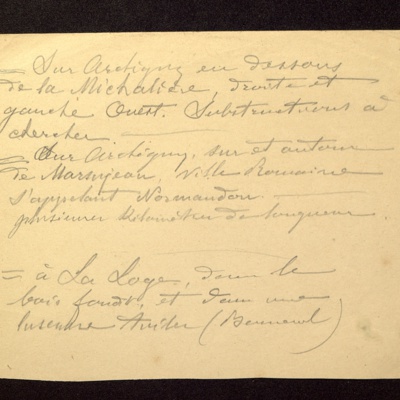 = Sur Archigny en dessous
de la Michalière, droite et
gauche Ouest. Substructions à
chercher
= Sur Archigny, sur et autour
de Marsujeau, Ville Romaine
s'appelant Normandon
plusieurs kilomètres de longueur.
= à La Loge, dans le
bois fonds, et dans une